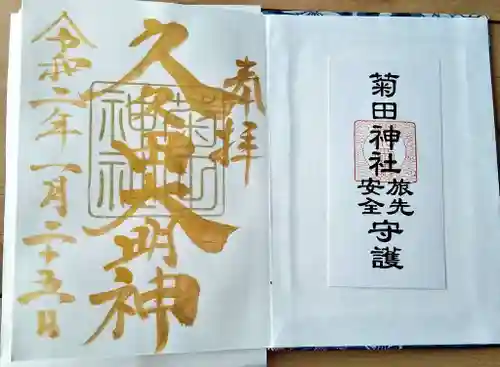 奉拝
久々田大明神
菊田
神社
令和二年一月二十五日
菊田神社
旅先
安全
守護